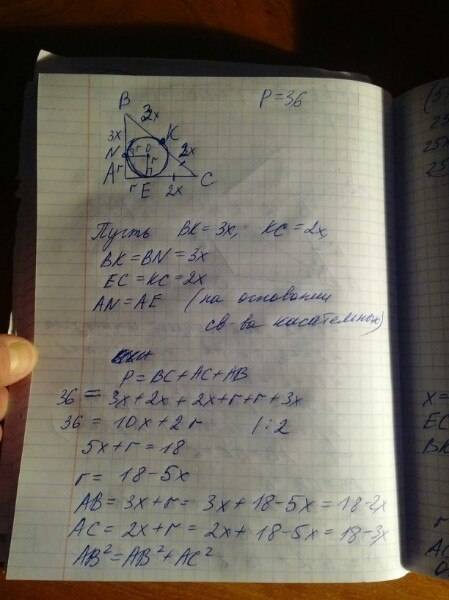 P=36
B
3x
3x
K
N
O
r
2x
A
r
r
E
2x
C
Пусть BK=3x, KC=2x,
BK=BN=3x
EC=KC=2x
AN=AE (на основании
св-ва касательной)
P=BC+AC+AB
36 = 3x+2x+2x+r+r+3x
36 = 10x+2r |:2
5x+r=18
r= 18-5x
AB=3x+r= 3x+18-5x=18-2x
AC=2x+r=2x+18-5x=18-3x
AB²=AB²+AC²
(5
25
25x
25
x=
EC
BK
r
AC